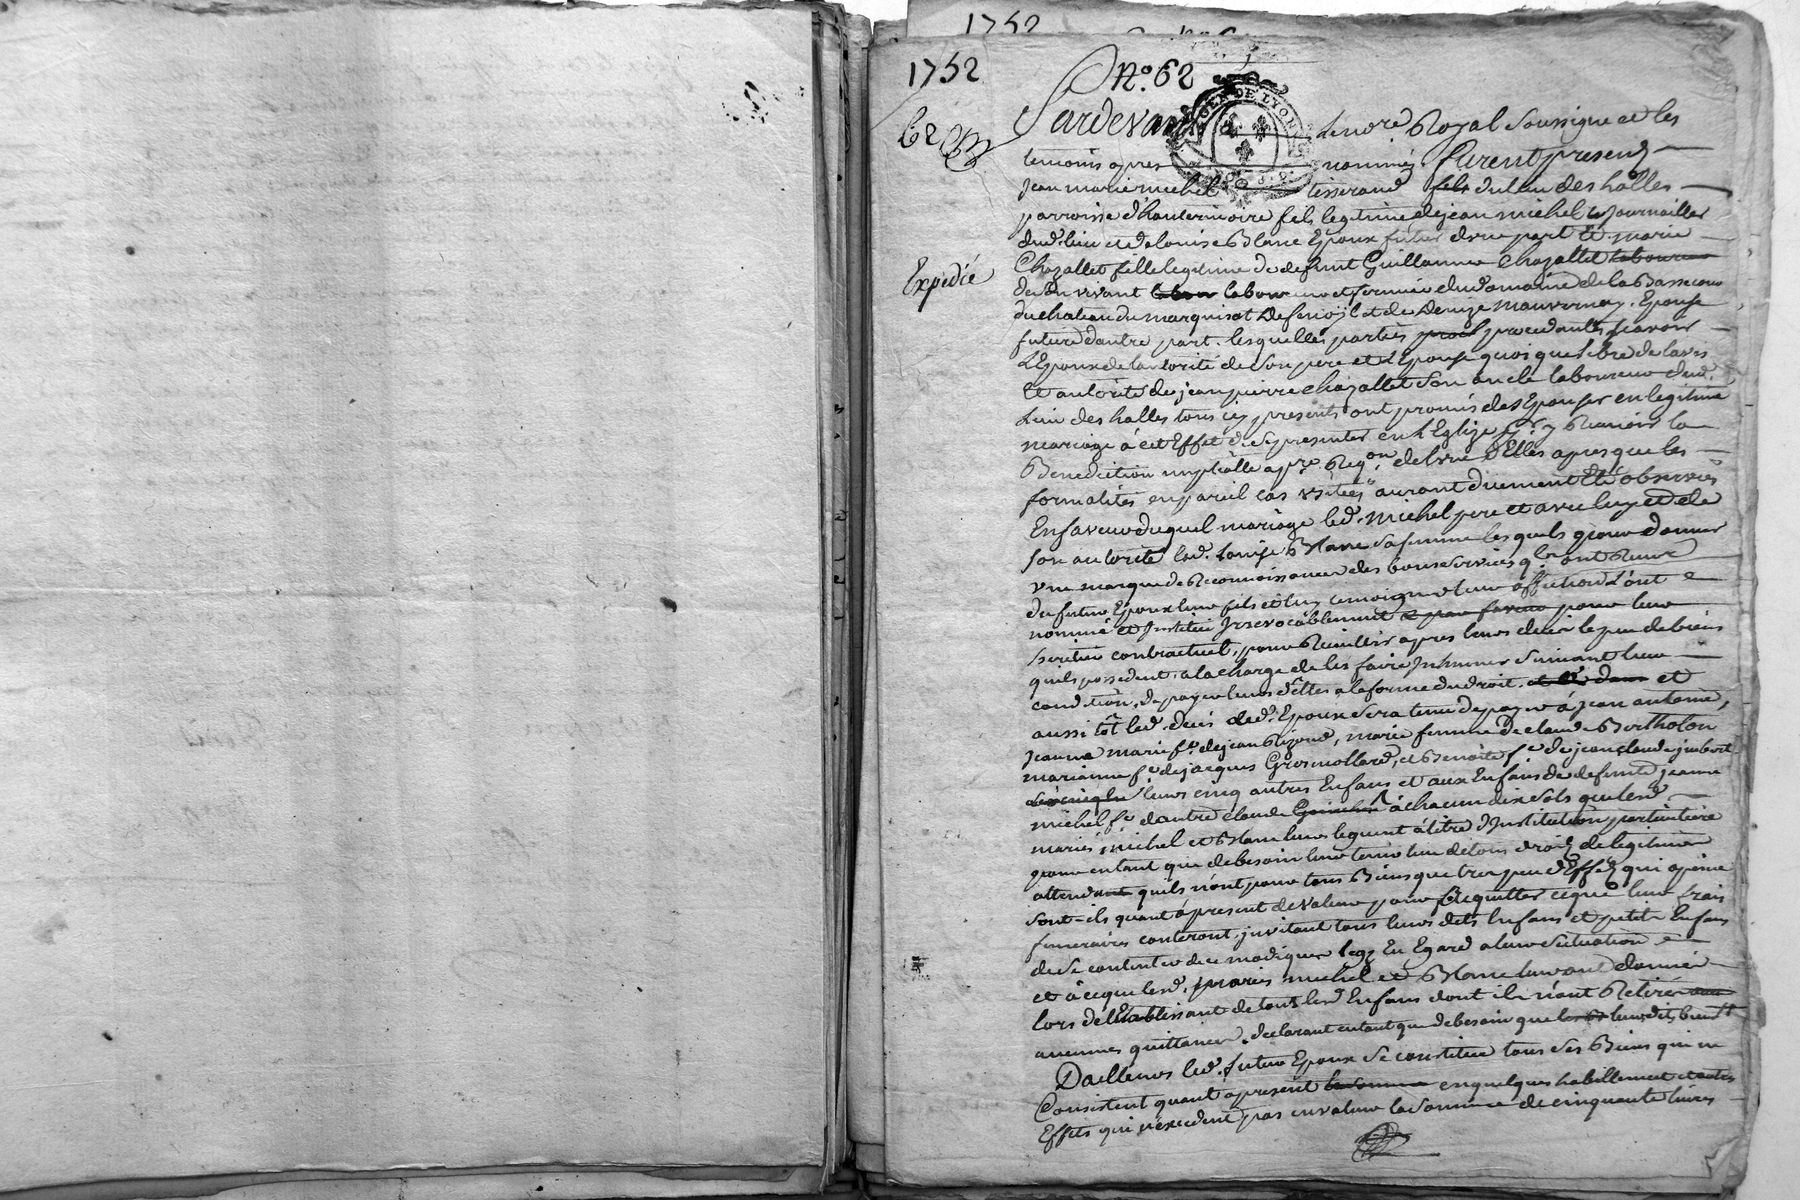 1752
1752
N.º 62
62
GEN DE LYON
Pardevant Le no.re Royal Soussigné et les
temoins apres nommés furent presens
Jean marie michel tisserand fils du lieu des halles
parroisse d'hauterivoire fils legitime de jean michel journallier
dud. lieu et de louise Blanc Epoux futur d'une part Et marie
Chazallet fille legitime de defunt Guillaume Chazallet laboureur
Expedié
de son vivant labour laboureur et fermier du domaine de la Bassecour
du chateau du marquisat de et de Denize mauvernay. Epouse
future d'autre part. lesquelles parties procedantes scavoir
L'Epoux de l'autorité de son pere et L'Epouse quoique libre de l'avis
Et autorité de jean pierre chazallet son oncle laboureur dud.
Lieu des halles tous icy presents ont promis de s'Epouser en legitime
mariage à cet Effet de se presenter en L'Eglise p.r y Recevoir la
Benediction nuptialle a p.re Reqon. de l'une d'Elles apres que les
formalités en pareil cas usitées auront duement Eté observées
En faveur duquel mariage led. michel pere et avec luy et de
son autorité lad. Louise Blanc sa femme lesquels pour donner
une marque de Reconnoissance des bons services q.ls ont Receu
du futur Epoux leur fils et luy temoigner leur affection L'ont
nommé et Institué Irrevocablement pour leur
heritier contractuel, pour Recuillir apres leurs deces le peu de biens
quils possedent a la charge de les faire Inhumer suivant leur
condition, de payer leurs dettes a la forme du droit. et
aussi tôt led. deces led. Epoux sera tenu de payer à jean antoine,
Jeanne marie f.e de jean , marie femme de claude Bertholon
marianne f.e de jacques Grosmollard, et Benoite f.e de jean claude jmbert
leurs cinq autres Enfans et aux Enfans de defunte jeanne
michel f.e d'autre claude à chacun dix sols que lesd.
mariés michel et Blanc leurs leguent à titre d'Institution particuliere
pour entant que de besoin leur tenir lieu de tous droits de legitime
attendant quils n'ont pour tous Biens que tres peu d'Effets qui apeine
sont-ils quant à present de valeur pour acquitter ceque leur frais
funeraires conteront. jnvitant tous leurs dits Enfans et petits Enfans
de se contenter de ce modique legs Eu Egard a leur situation
et à ceque lesd. mariés michel et Blanc leur ont donné
lors de l'Etablissant de tous lesd Enfans dont ils n'ont Retirer
aucunes quittances. declarant entant que de besoin que leursdits biens
Dailleurs led. futur Epoux se constitue tous ses Biens qui ne
Consistent quant à present en quelques habillement et autres
Effets qui n'excedent pas en valeur la somme de cinquante livres